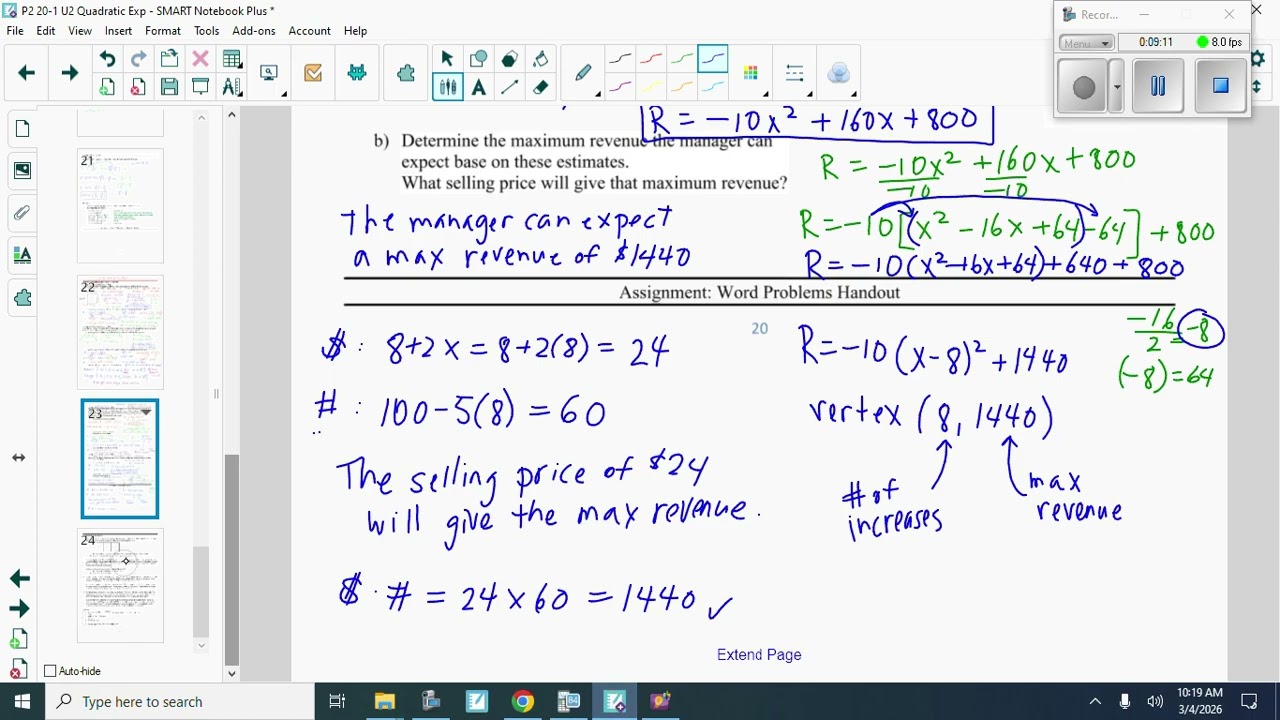 P2 20-1 U2 Quadratic Exp - SMART Notebook Plus *
Recor...
File Edit View Insert Format Tools Add-ons Account Help
Menu
0:09:11
8.0 fps
R = -10x² + 160x + 800
b) Determine the maximum revenue the manager can
expect base on these estimates.
What selling price will give that maximum revenue?
R = -10x² + 160x + 800
-10 -10
the manager can expect
a max revenue of $1440
R = -10[(x² - 16x + 64) - 64] + 800
R = -10(x² - 16x + 64) + 640 + 800
Assignment: Word Problems Handout
20
-16
2 = -8
(-8) = 64
$ : 8 + 2x = 8 + 2(8) = 24
# : 100 - 5(8) = 60
R = -10(x - 8)² + 1440
vertex (8, 1440)
The selling price of $24
will give the max revenue.
# of
increases
max
revenue
$ · # = 24 × 60 = 1440 ✓
Extend Page
21
22
23
24
Auto-hide
Type here to search
10:19 AM
3/4/2026